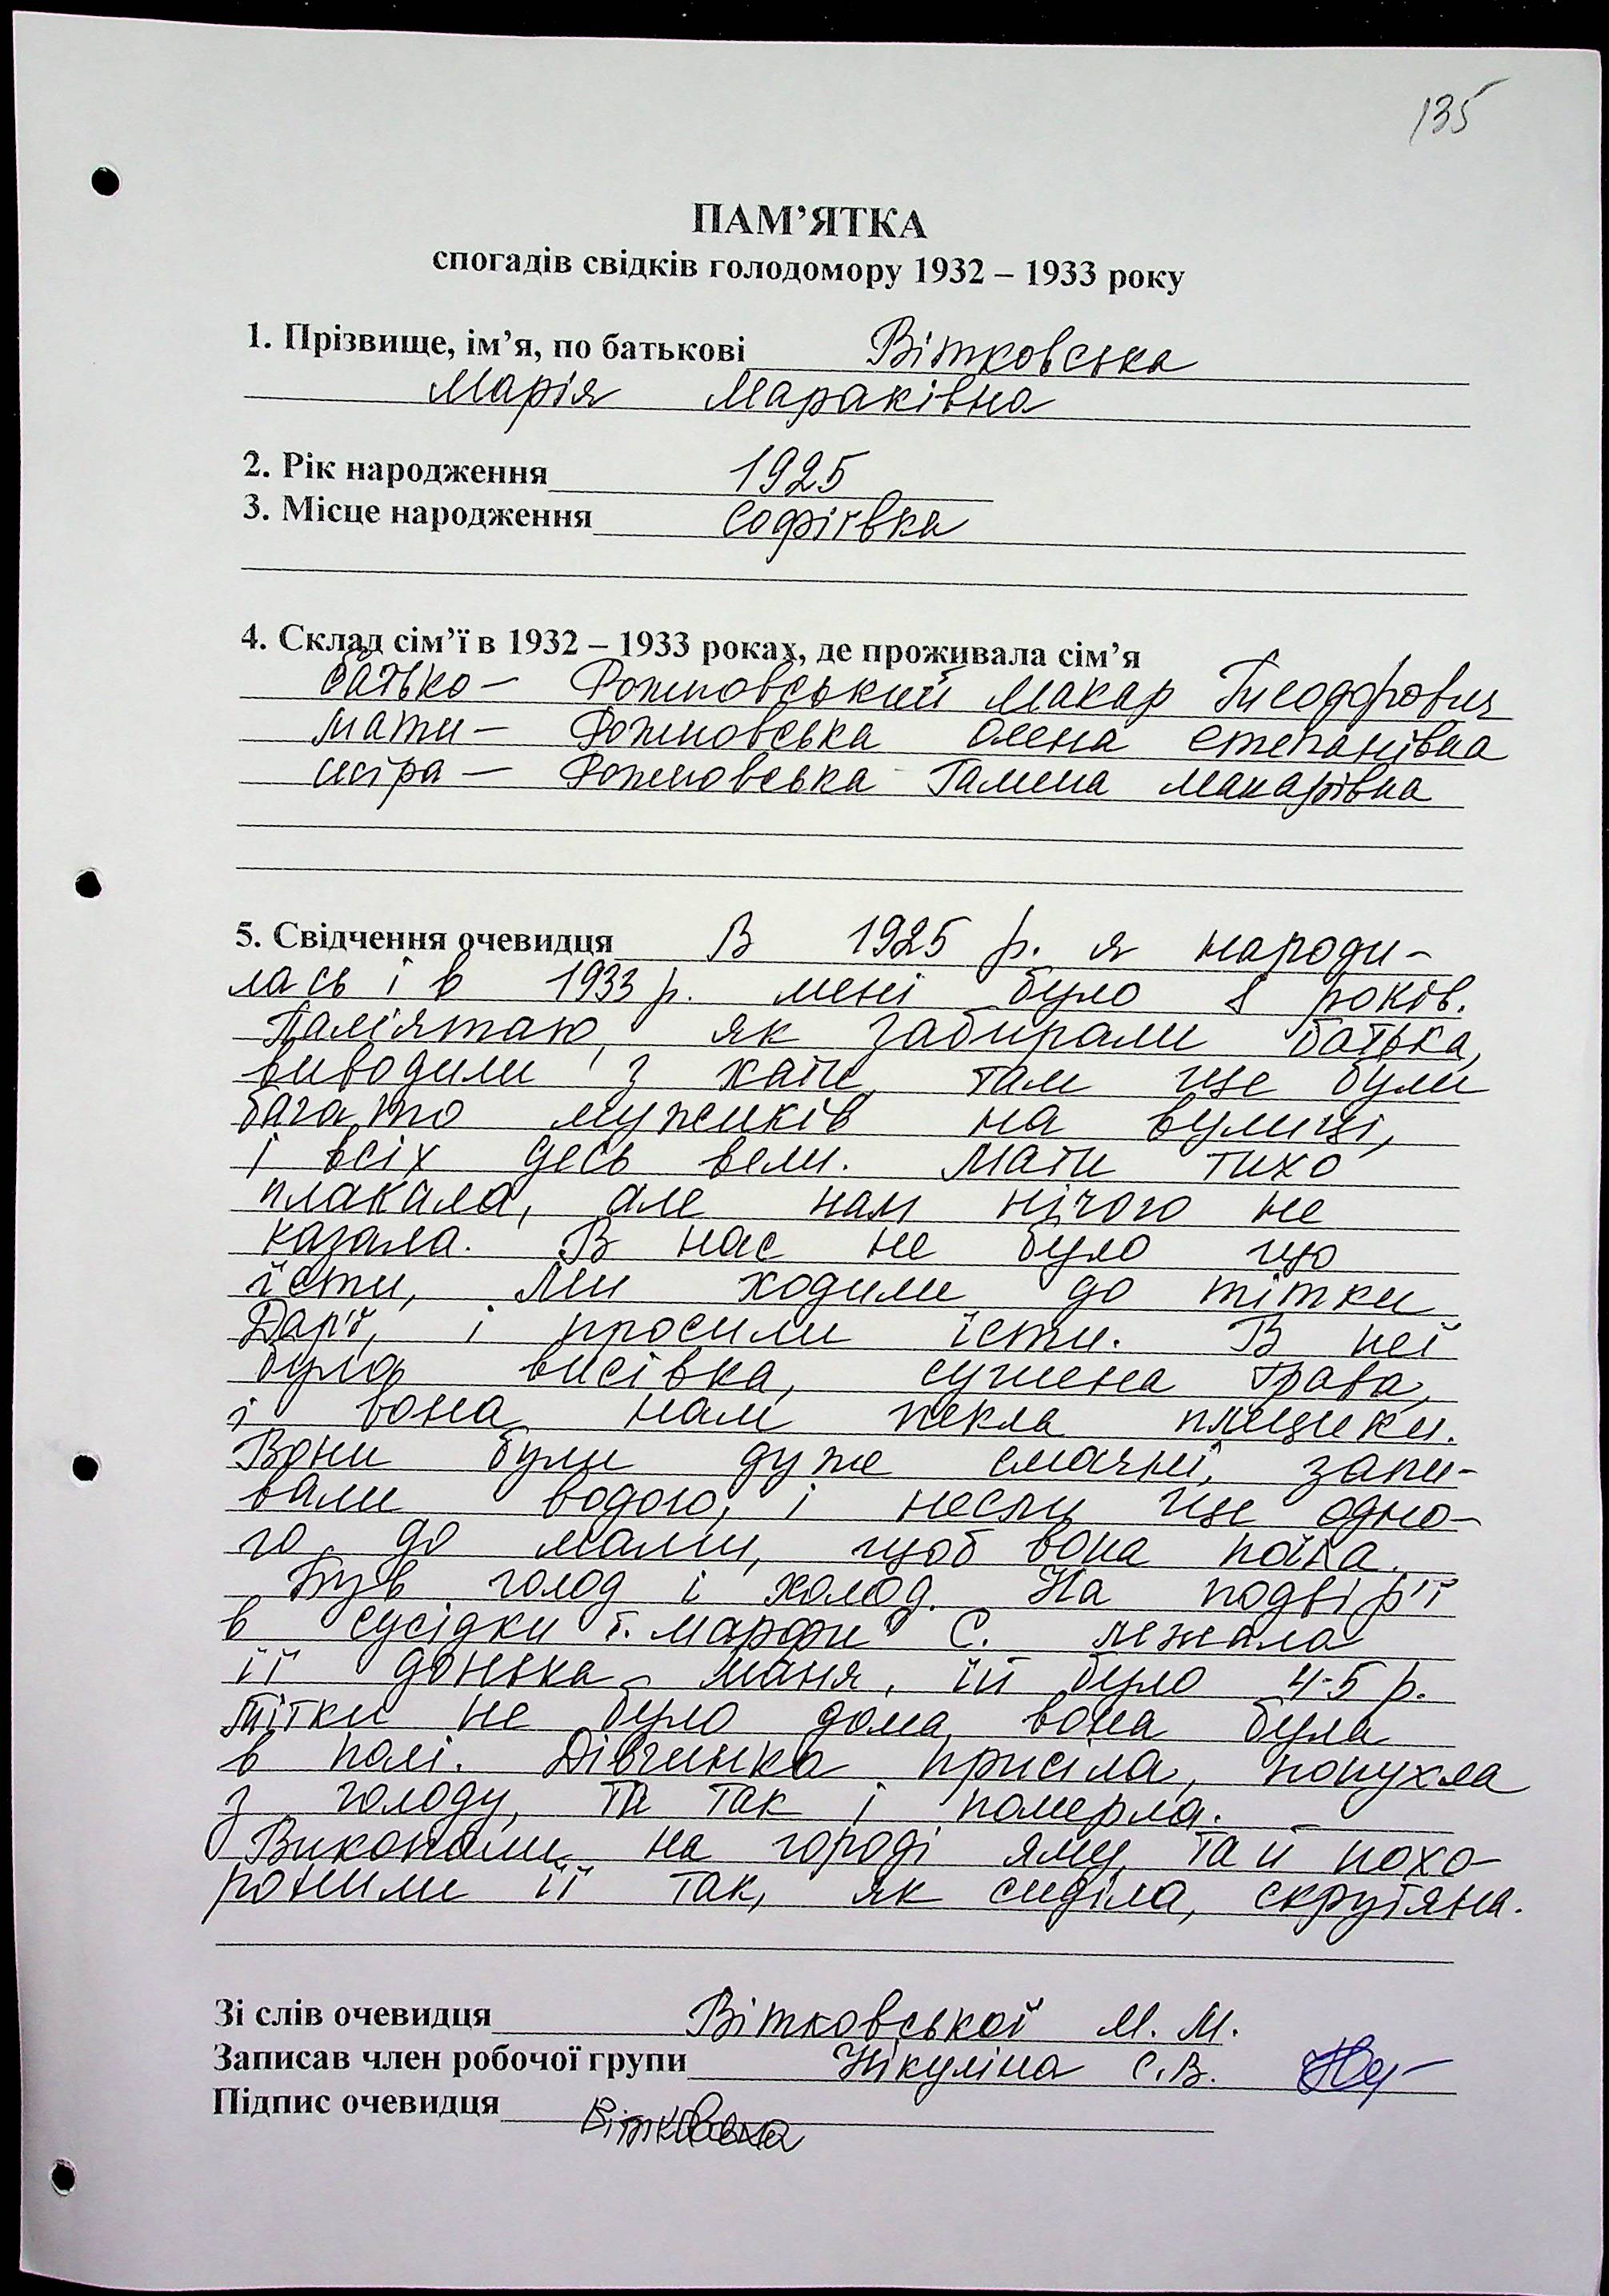 135
ПАМ'ЯТКА
спогадів свідків голодомору 1932 – 1933 року
1. Прізвище, ім'я, по батькові Вітковська
Марія Мараківна
2. Рік народження 1925
3. Місце народження Софіївка
4. Склад сім'ї в 1932 – 1933 роках, де проживала сім'я
батько – Макар
мати – Олена Степанівна
сестра – Галина Макарівна
5. Свідчення очевидця В 1925 р. я народи-
лась і в 1933 р. мені було 8 років.
Пам'ятаю, як забирали батька,
виводили з хати, там ще були
багато мужиків на вулиці,
і всіх десь вели. Мати тихо
плакала, але нам нічого не
казала. В нас не було що
їсти, ми ходили до тітки
Дар'ї, і просили їсти. В неї
була висівка, сушена трава,
і вона нам пекла плящики.
Вони були дуже смачні, запи-
вали водою, і несли ще одно-
го до мами, щоб вона поїла.
Був голод і холод. На подвір'ї
в сусідки т. Марфи С. лежала
її донька Маня, їй було 4-5 р.
Тітки не було дома, вона була
в полі. Дівчинка присіла, попухла
з голоду, та так і померла.
Викопали на городі яму, та й похо-
ронили її так, як сиділа, скрутяна.
Зі слів очевидця Вітковської М. М.
Записав член робочої групи Нікуліна С.В.
Підпис очевидця Вітковська